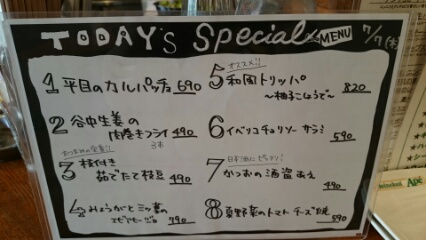 TODAY'S Special MENU 7/7(木)
1 平目のカルパッチョ 690
2 谷中生姜の
肉巻きフライ 490
3本
3 枝付き
茹でたて枝豆 490
4 みょうがと三つ葉の
490
オススメ!!
5 和風トリッパ
〜柚子こしょうで〜 820
6 イベリコチョリソー サラミ 590
日本酒にピッタリ!
7 かつおの酒盗あえ 490
8 夏野菜のトマトチーズ焼 590